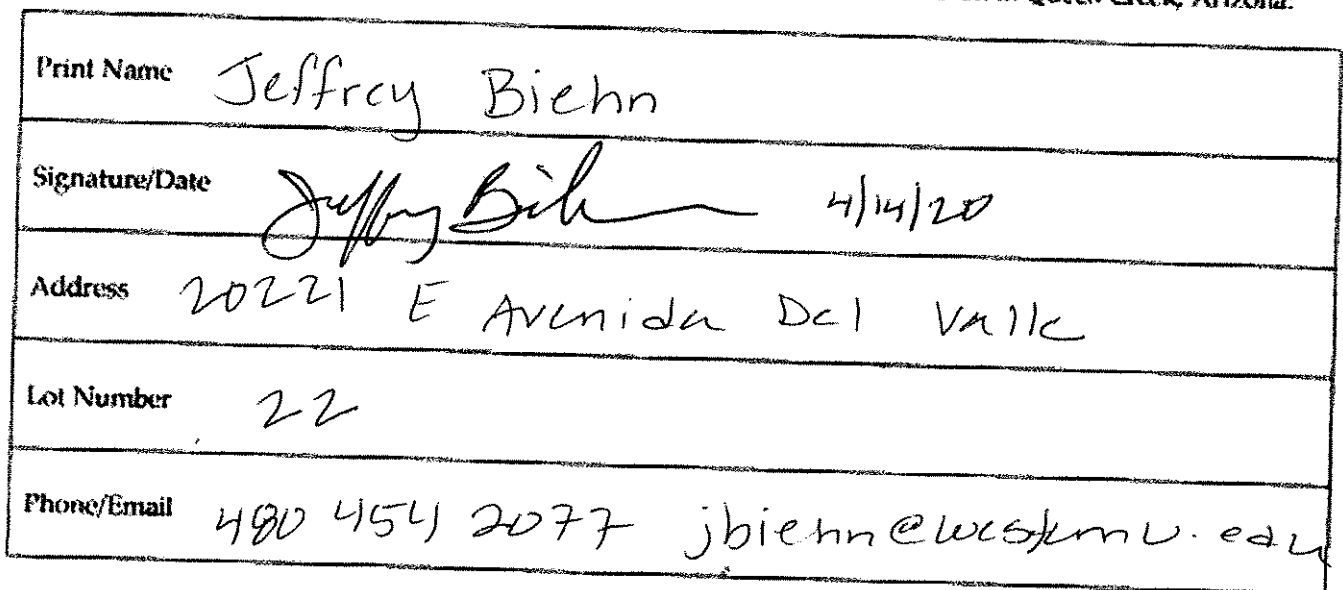 Queen Creek, Arizona.
Print Name Jeffrey Biehn
Signature/Date Jeffrey Bieh 4/14/20
Address 20221 E Avenida Del Valle
Lot Number 22
Phone/Email 480 454 2077 jbiehn@westernu.edu